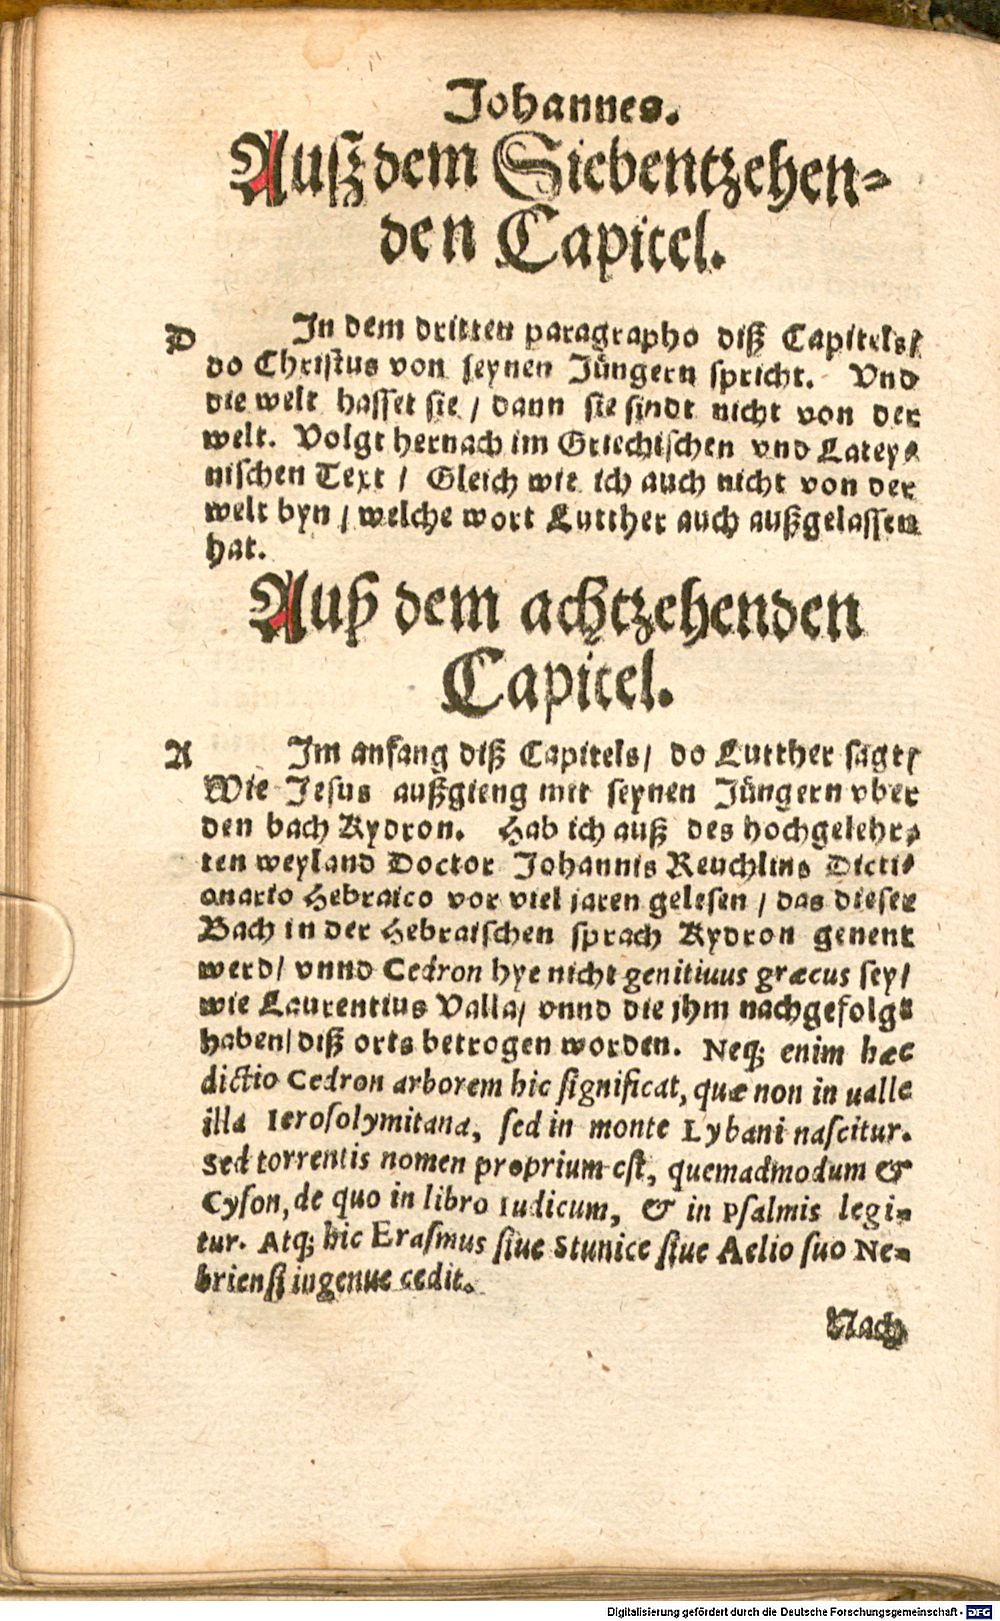 Johannes.
Auß dem Siebentzehen-
den Capitel.
D In dem dritten paragrapho diß Capitels/
do Christus von seynen Jüngern spricht. Vnd
die welt hasset sie / dann sie sindt nicht von der
welt. Volgt hernach im Griechischen vnd Latey-
nischen Text / Gleich wie ich auch nicht von der
welt byn / welche wort Lutther auch außgelassen
hat.
Auß dem achtzehenden
Capitel.
A Im anfang diß Capitels/ do Lutther sagt/
Wie Jesus außgieng mit seynen Jüngern vber
den bach Kydron. Hab ich auß des hochgelehr-
ten weyland Doctor Johannis Reuchlins Dicti-
onario Hebraico vor viel jaren gelesen / das dieser
Bach in der Hebraischen sprach Kydron genent
werd/ vnnd Cedron hye nicht genitiuus græcus sey/
wie Laurentius Valla/ vnnd die jhm nachgefolgt
haben/ diß orts betrogen worden. Neq; enim hæc
dictio Cedron arborem hic significat, quæ non in ualle
illa Ierosolymitana, sed in monte Lybani nascitur.
Sed torrentis nomen proprium est, quemadmodum &
Cyson, de quo in libro Iudicum, & in Psalmis legi-
tur. Atq; hic Erasmus siue Stunice siue Aelio suo Ne-
briensi ingenue cedit.
Nach
Digitalisierung gefördert durch die Deutsche Forschungsgemeinschaft - DFG